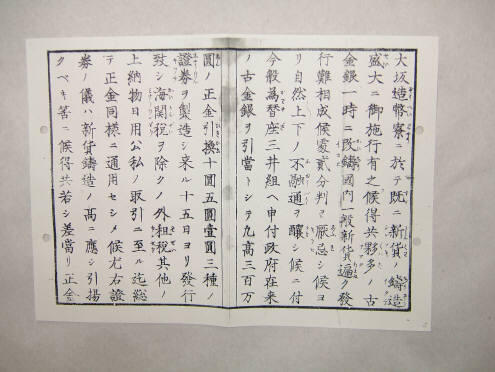 大坂造幣寮ニ於テ既ニ新貨ノ鑄造
盛大ニ御施行有之候得共夥多ノ古
金銀一時ニ改鑄國内一般新貨遍ク發
行難相成候處貳分判ヲ厭忌シ候ヨ
リ自然上下ノ不融通ヲ釀シ候ニ付
今般為替座三井組ヘ申付政府在来
ノ古金銀ヲ引當トシテ凡高三百万
圓ノ正金引換十圓五圓壹圓三種ノ
證券ヲ製造シ来ル十五日ヨリ發行
致シ海関税ヲ除クノ外租税其他ノ
上納物日用公私ノ取引ニ至ル迄総
テ正金同様ニ通用セシメ候尤右證
券ノ儀ハ新貨鑄造ノ高ニ應シ引揚
クベキ筈ニ候得共若シ差當リ正金